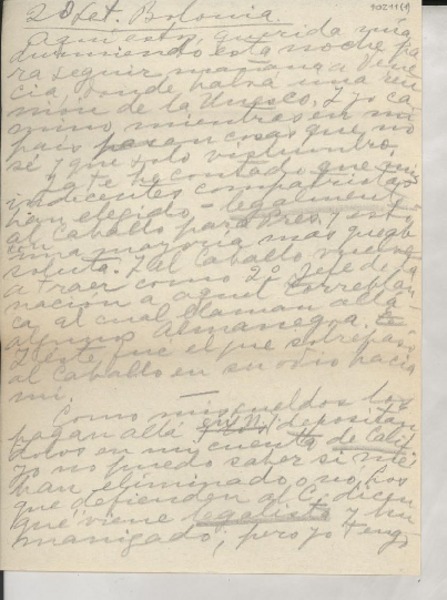 10211(1)
28 Set. Bolonia.
Aquí estoy, querida mía
durmiendo esta noche pa
ra seguir mañana a Vene
cia, donde habrá una reu
nión de la Unesco. Y yo ca
mino mientras en mi
país pasan cosas que no
sé y que solo vislumbro.
Ya te he contado que mis
indicentes compatriotas
han elegido, - legalmente -
al Caballo para Pres. y esto
con una mayoría mas que ab
soluta. Y al Caballo vuelve
a traer como 2º Jefe de la
nación a aquel Torreblan
ca, al cual llaman allá
algunos Almanegra.
Y éste fue el que sobrepasó
al Caballo en su odio hacia
mí.
Como mis sueldos los
pagan allá depositán
dolos en mi cuenta de Calif
yo no puedo saber si me
han eliminado o no. Los
que defienden al C. dicen
que viene legalista y hu
manizado; pero yo tengo